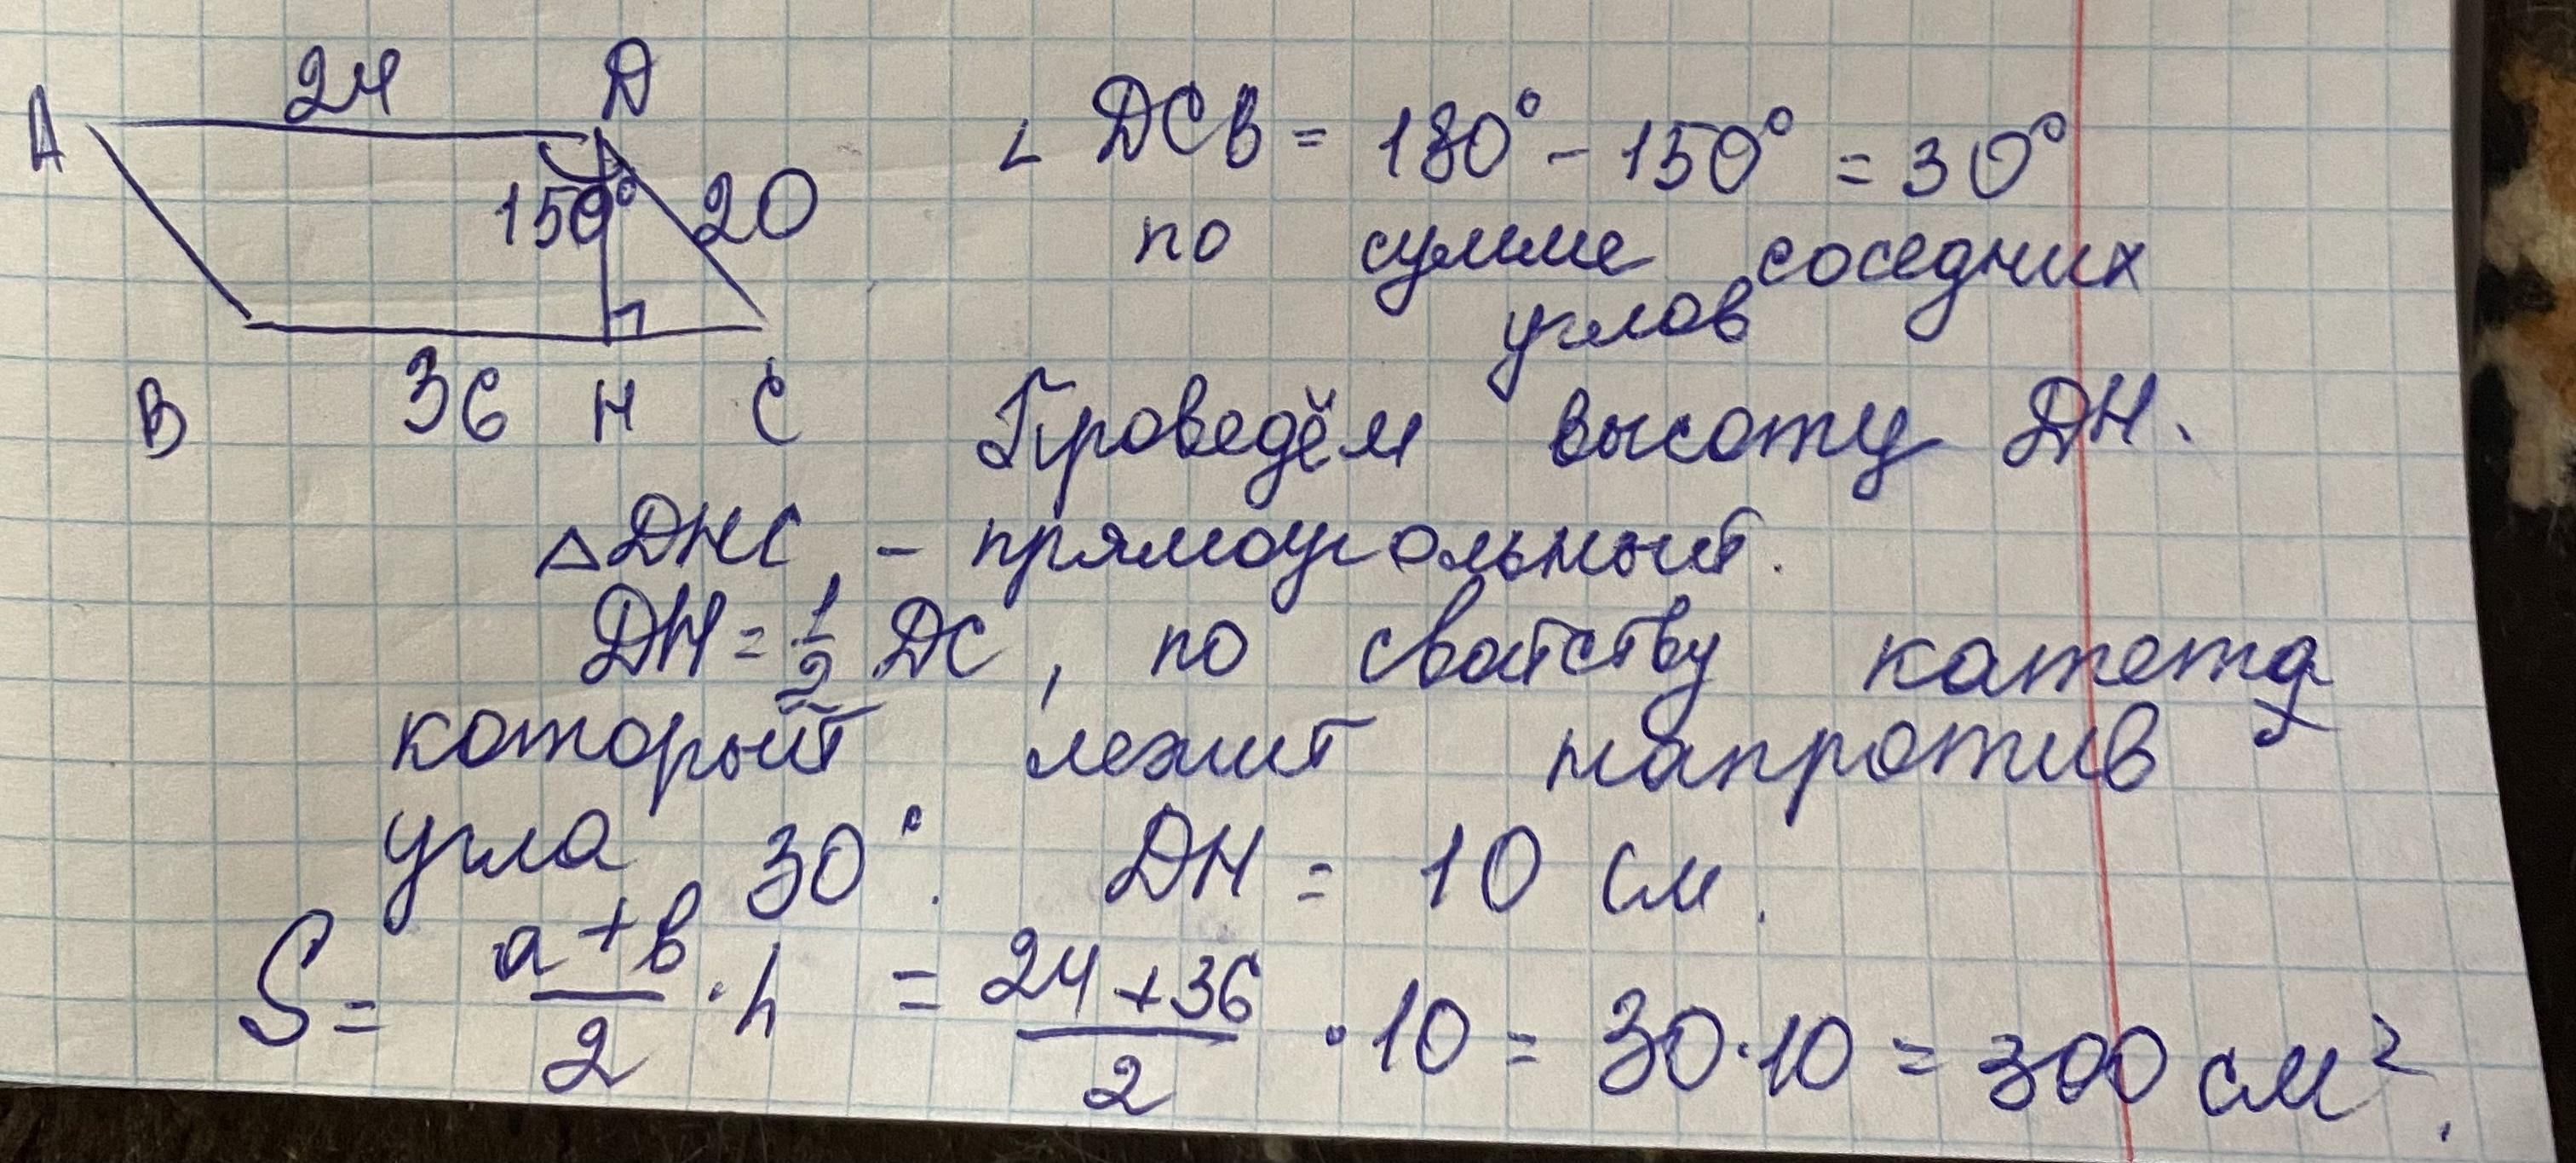 24 D
A
150° 20
B 36 H C
∠ DCB = 180° - 150° = 30°
по сумме соседних
углов
Проведём высоту DH.
△DHC - прямоугольный.
DH = 1/2 DC, по свойству катета
который лежит напротив
угла 30°. DH = 10 см.
S = (a+b)/2 · h = (24+36)/2 · 10 = 30·10 = 300 см².